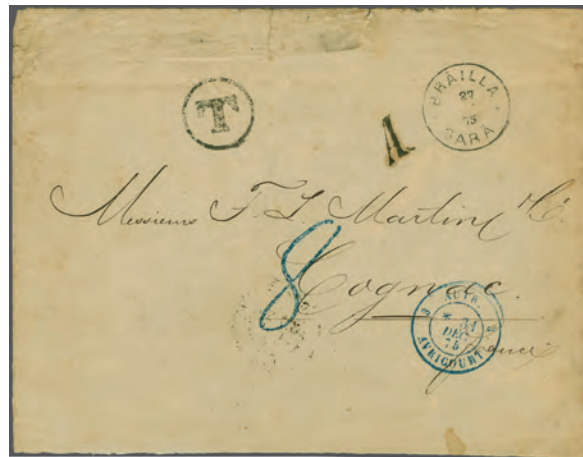 T
BRAILLA
27
75
GARA
A
Messieurs F. L. Martin & Cº.
8
Cognac.
AUTR.
31
DEC
75
AVRICOURT
France